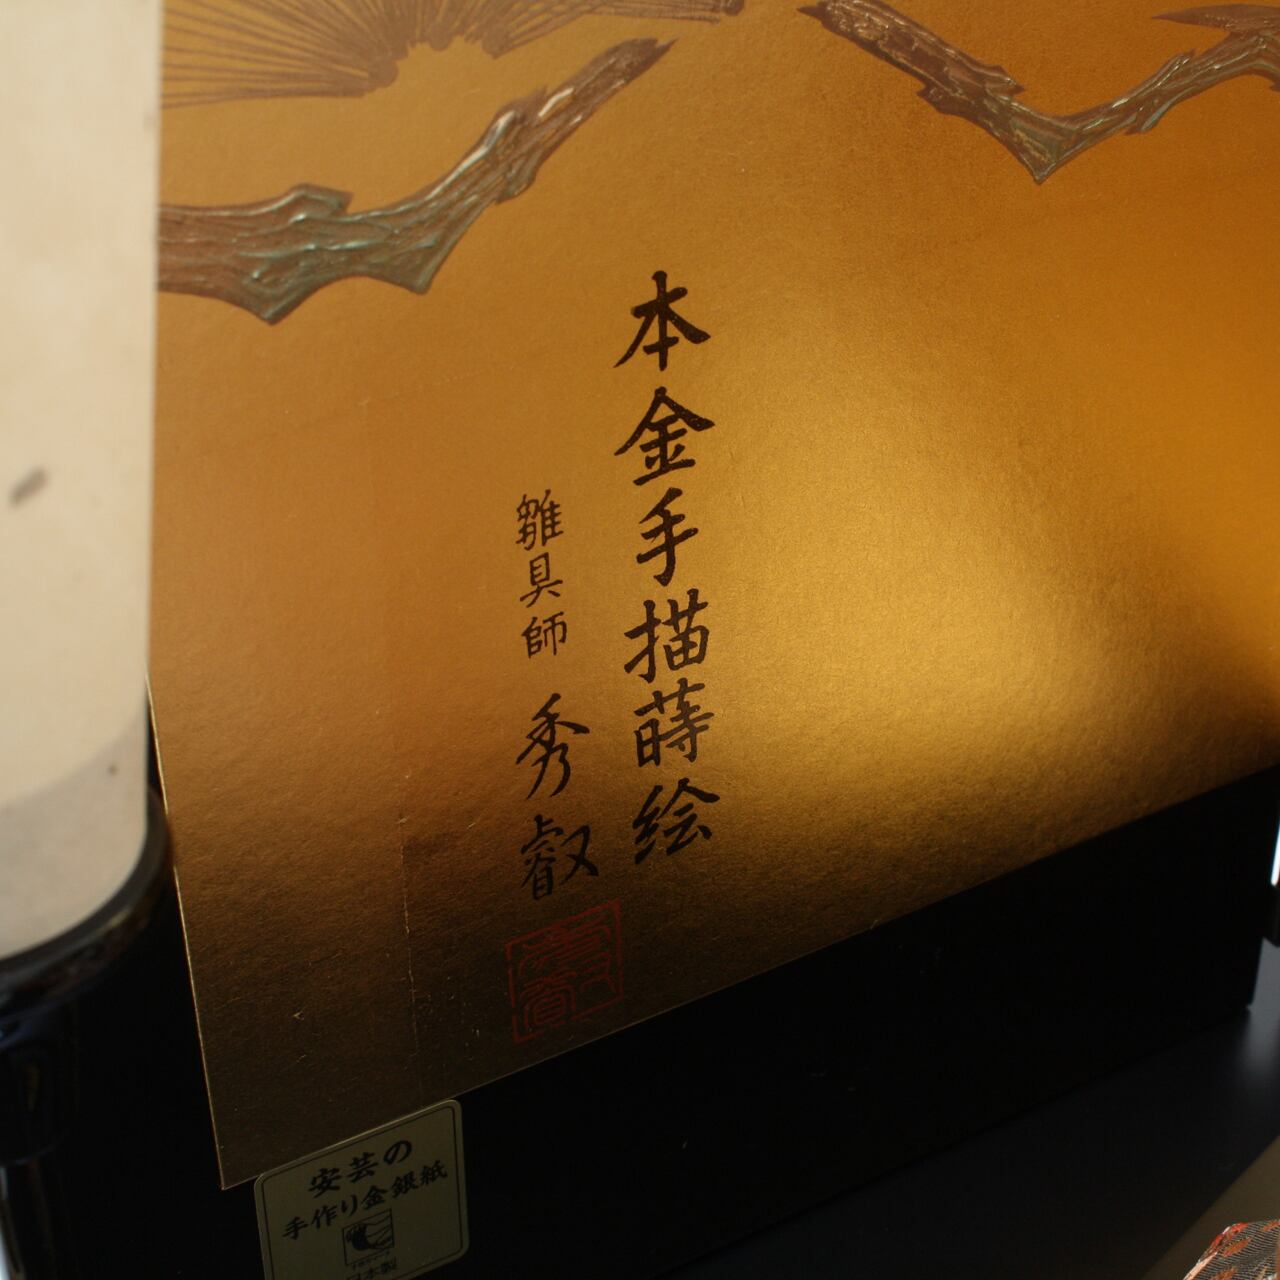 本金手描蒔絵
雛具師 秀叡
安芸の
手作り金銀紙
日本製